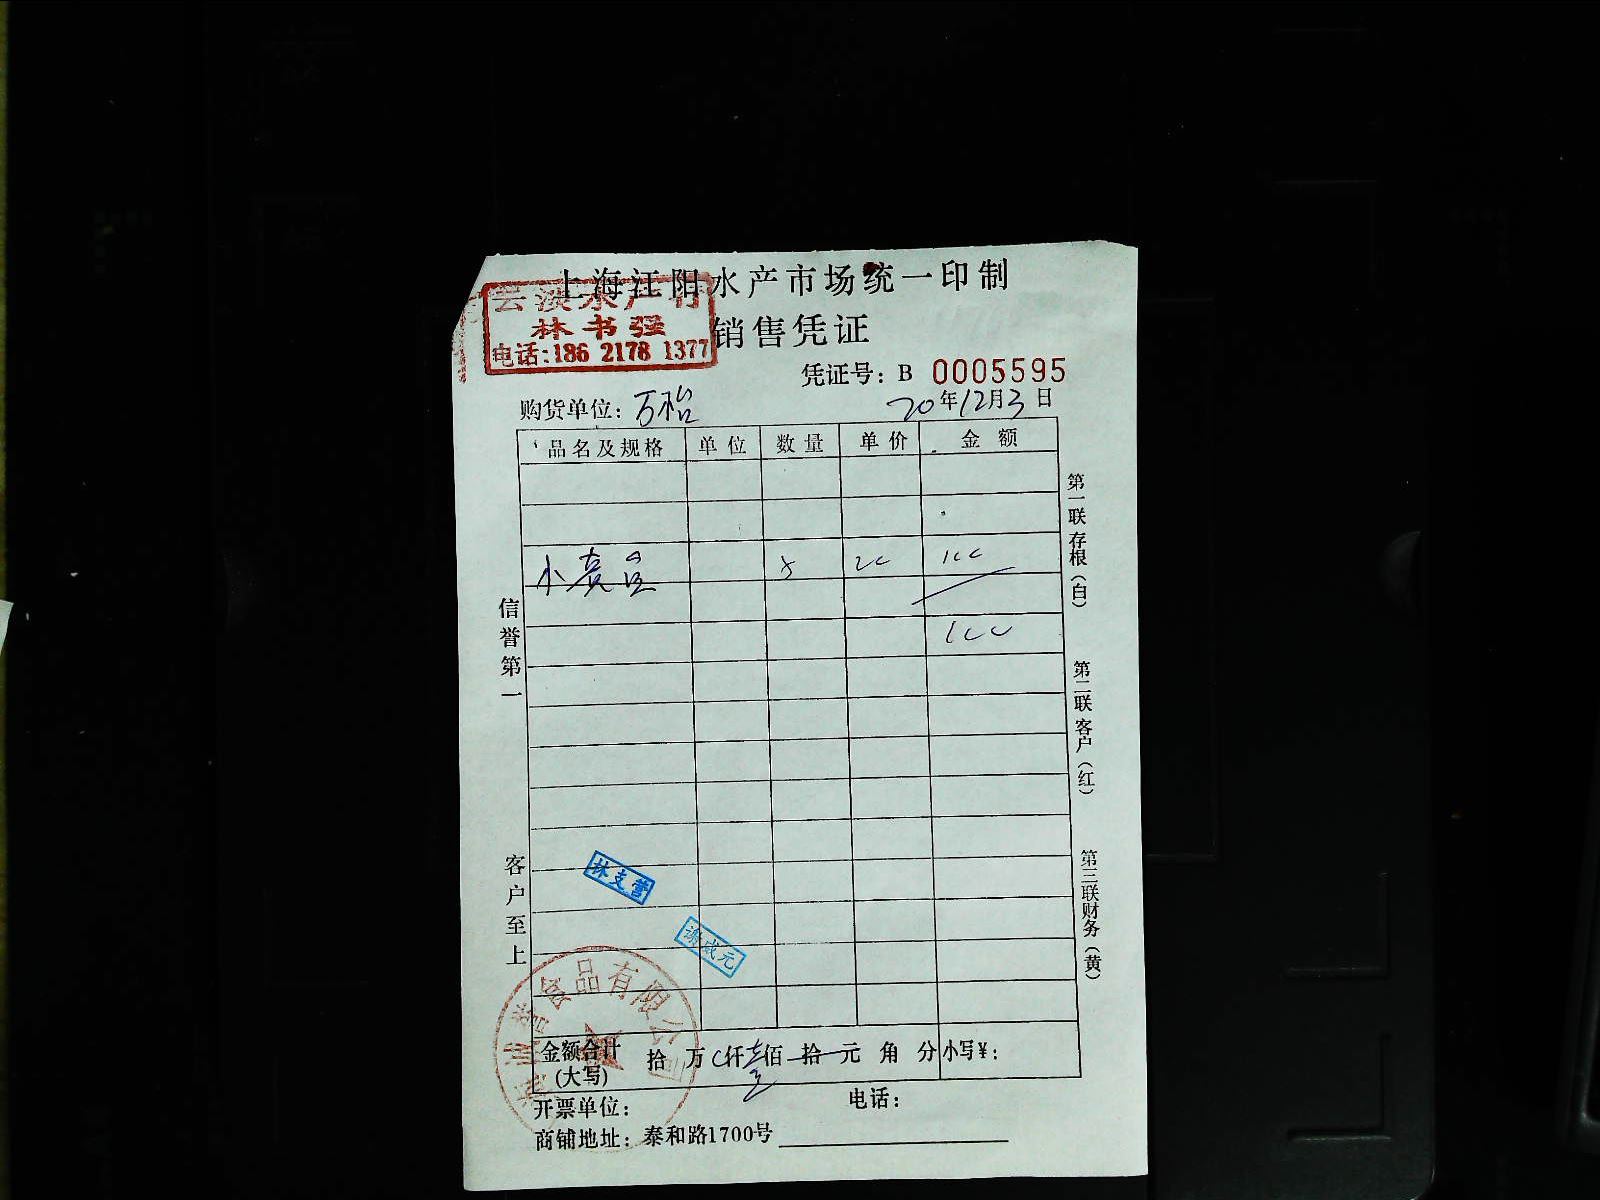 上海江阳水产市场统一印制
林书强
电话:186 2178 1377
销售凭证
凭证号: B 0005595
购货单位: 万裕
20年12月3日
品名及规格 单位 数量 单价 金额
5 20 100
100
信誉第一
客户至上
第一联存根(白)
第二联客户(红)
第三联财务(黄)
林支营
谢成元
食品有限公司
金额合计(大写) 拾 万 仟 壹佰 拾 元 角 分 小写¥:
开票单位: 电话:
商铺地址: 泰和路1700号